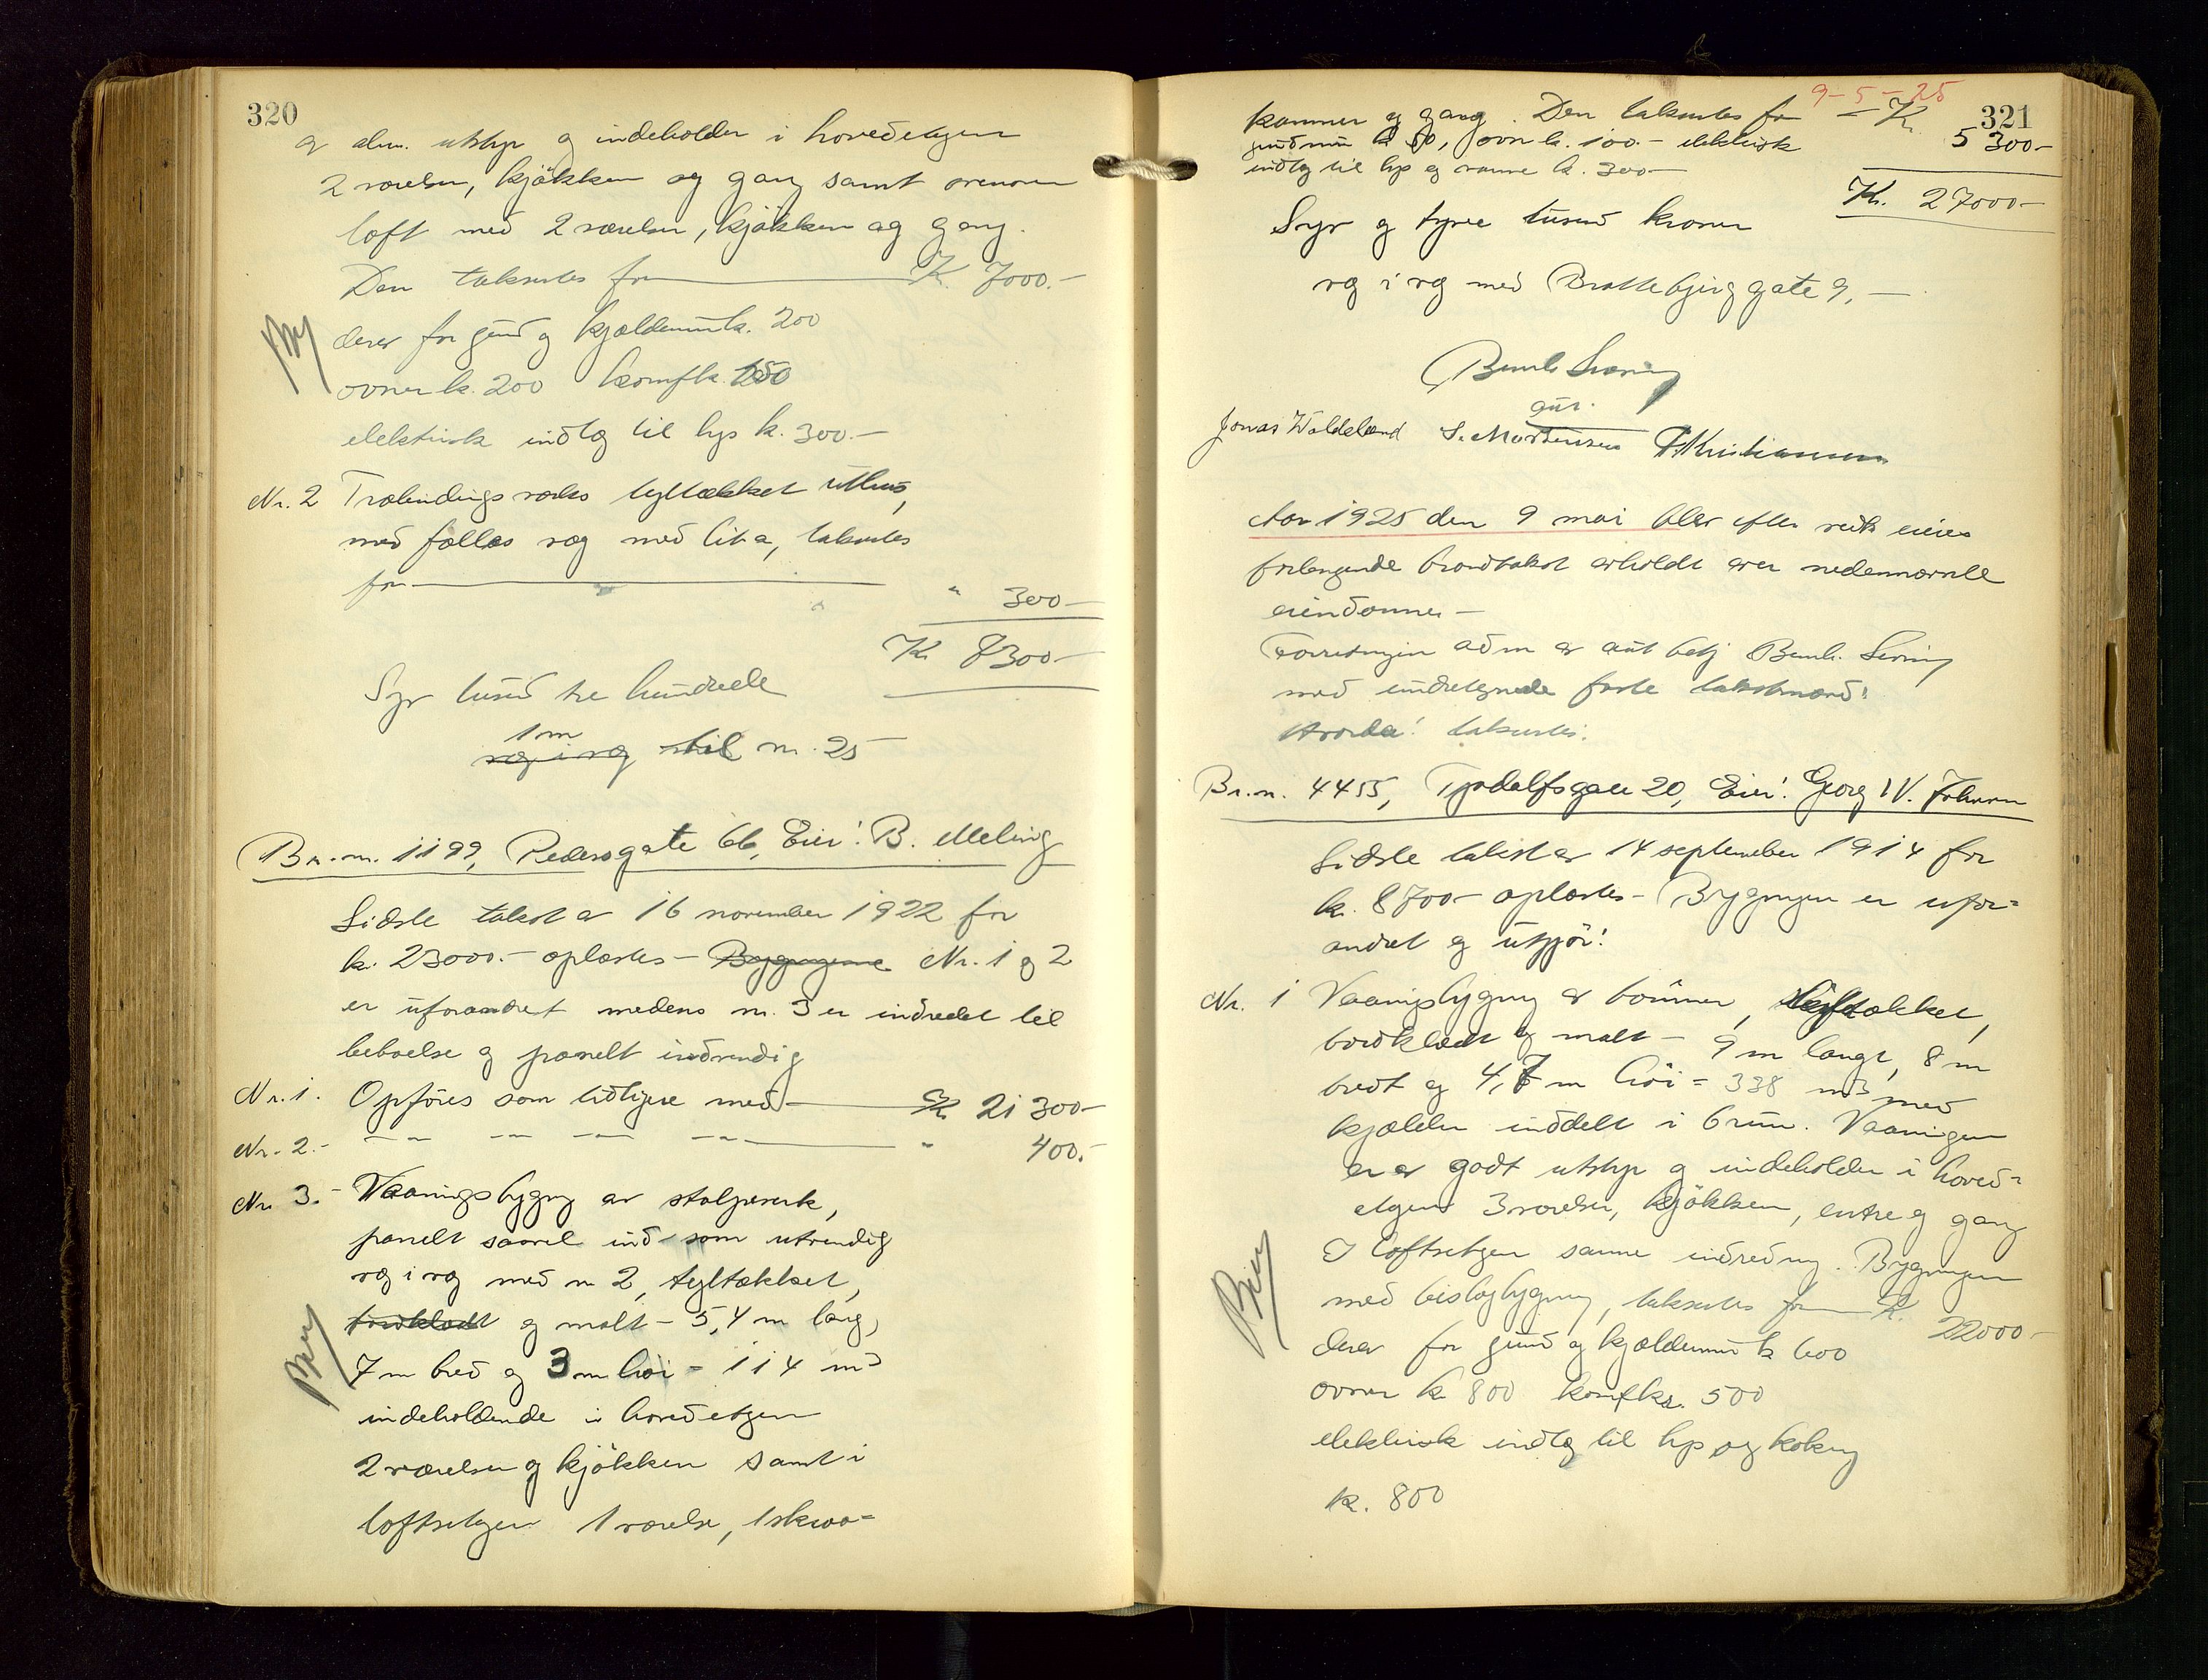 320
av alm. utstyr og indeholder i hovedetagen
2 værelser, kjökken og gang samt ovenover
loft med 2 værelser, kjökken og gang.
Den takseres for K. 7000.-
Bry
derav for grund og kjældermur k. 200
ovner k. 200 komf k. 150
elektrisk indlæg til lys k. 300.-
Nr. 2 Træbindingsverks tegltækket uthus,
med fælles væg med lit a, takseres
for " 300-
K 7300-
Syv tusind tre hundrede
1 m
væg i væg til nr. 25
Br.-nr. 1199, Pedersgate 66, Eier: B. Meling
Sidste takst av 16 november 1922 for
kr. 23000.- oplæstes - Bygningene Nr. 1 og 2
er uforandret medens nr. 3 er indredet til
beboelse og panelt indvendig
Nr. 1. Opföres som tidligere med Kr. 21300-
Nr. 2.- -"- -"- -"- -"- " 400.-
Nr 3.- Vaaningsbygning av stolpeverk,
panelt saavel ind- som utvendig
væg i væg med nr 2, tegltækket,
bordklædt og malt - 5,4 m lang,
Bry
7 m bred og 3 m höi = 114 m3
indeholdende i hovedetagen
2 værelser og kjökken samt i
loftsetagen 1 værelse, 1 skraa-
9-5-25
321
kammer og gang. Den takseres for - Kr. 5300-
grundmur k 50, ovn k. 100.- elektrisk
indlæg til lys og varme k. 300-
Kr. 27000-
Syv og tyve tusind kroner
væg i væg med Brattebjerggate 9,-
Bernh. Svering
aut.
Jonas Waldeland S. Mortensen P. Kristiansen
Aar 1925 den 9 mai blev efter vedk. eieres
forlangende brandtakst avholdt over nedennævnte
eiendommer -
Forretningen adm av aut betj Bernh. Svering
med undertegnede faste takstmænd:
Hvorda: takseres:
Br.n. 4455, Tjodolfsgate 20, Eier: Georg W. Johnsen
Sidste takst av 14 september 1914 for
k. 8700- oplæstes - Bygningen er ufor=
andret og utgjör:
Nr. 1 Vaaningsbygning av tömmer, skifertækket,
bordklædt og malt - 9 m langt, 8 m
bredt og 4,7 m höi = 338 m3 med
kjælder inddelt i 6 rum. Vaaningen
er av godt utstyr og indeholder i hoved=
etagen 3 værelser, kjökken, entre og gang
I loftsetagen samme indredning. Bygningen
Bry
med bislagbygning, takseres for K. 22000-
derav for grund og kjældermur k 600
ovner k 800 komf kr. 500
elektrisk indlæg til lys og kokning
k. 800